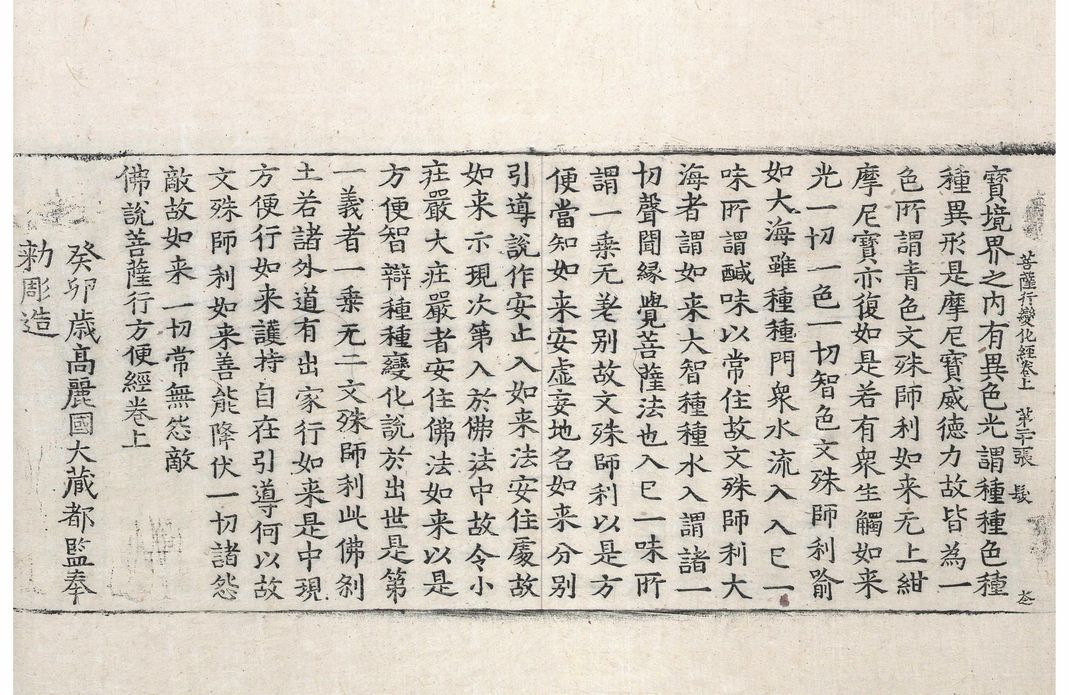 菩薩行變化經卷上 第二十張 髮
寶境界之內有異色光謂種種色種
種異形是摩尼寶威德力故皆為一
色所謂青色文殊師利如来无上紺
摩尼寶亦復如是若有衆生觸如来
光一切一色一切智色文殊師利喻
如大海雖種種門衆水流入入已一
味所謂醎味以常住故文殊師利大
海者謂如来大智種種水入謂諸一
切聲聞緣覺菩薩法也入已一味所
謂一乗无差別故文殊師利以是方
便當知如来安虛妄地名如来分別
引導說作安止入如来法安住處故
如来示現次第入於佛法中故令小
莊嚴大莊嚴者安住佛法如来以是
方便智辯種種變化說於出世是第
一義者一乗无二文殊師利此佛刹
土若諸外道有出家行如来是中現
方便行如来護持自在引導何以故
文殊師利如来善能降伏一切諸怨
敵故如来一切常無怨敵
佛說菩薩行方便經卷上
癸卯歳高麗國大藏都監奉
勑彫造